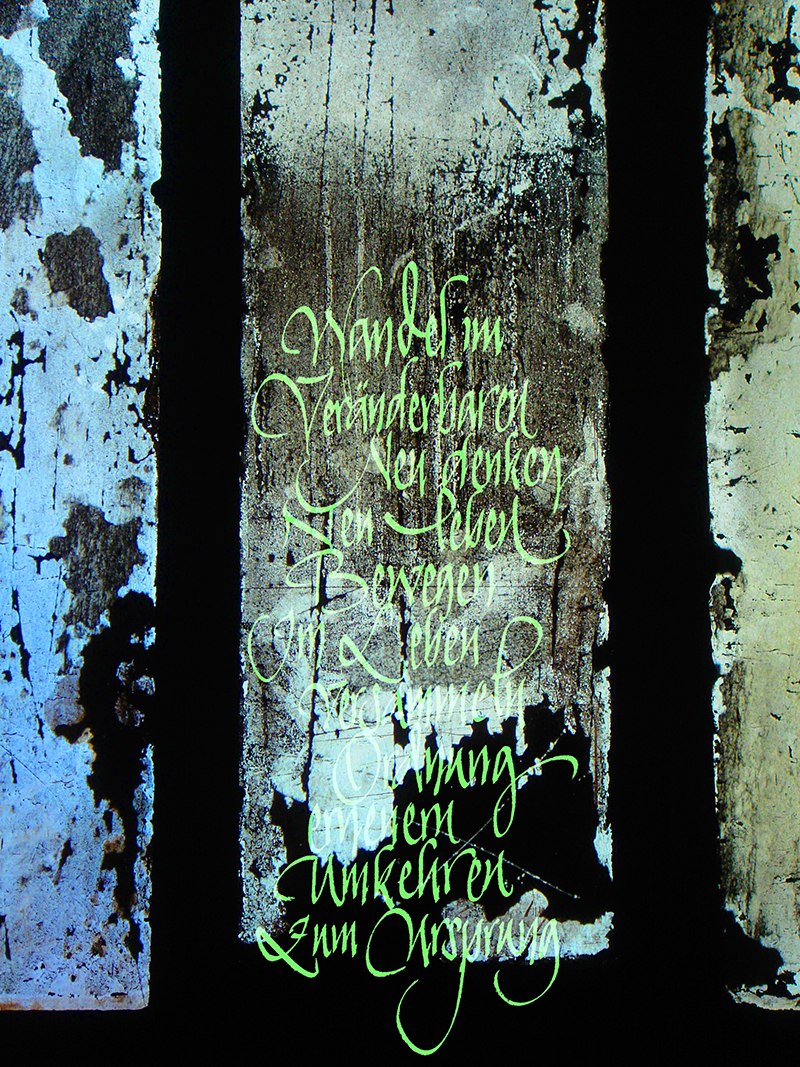 Wandel im
Veränderbaren
Neu denken
Neu leben
Bewegen
Im Leben
versammeln
Ordnung
erneuern
Umkehren
zum Ursprung